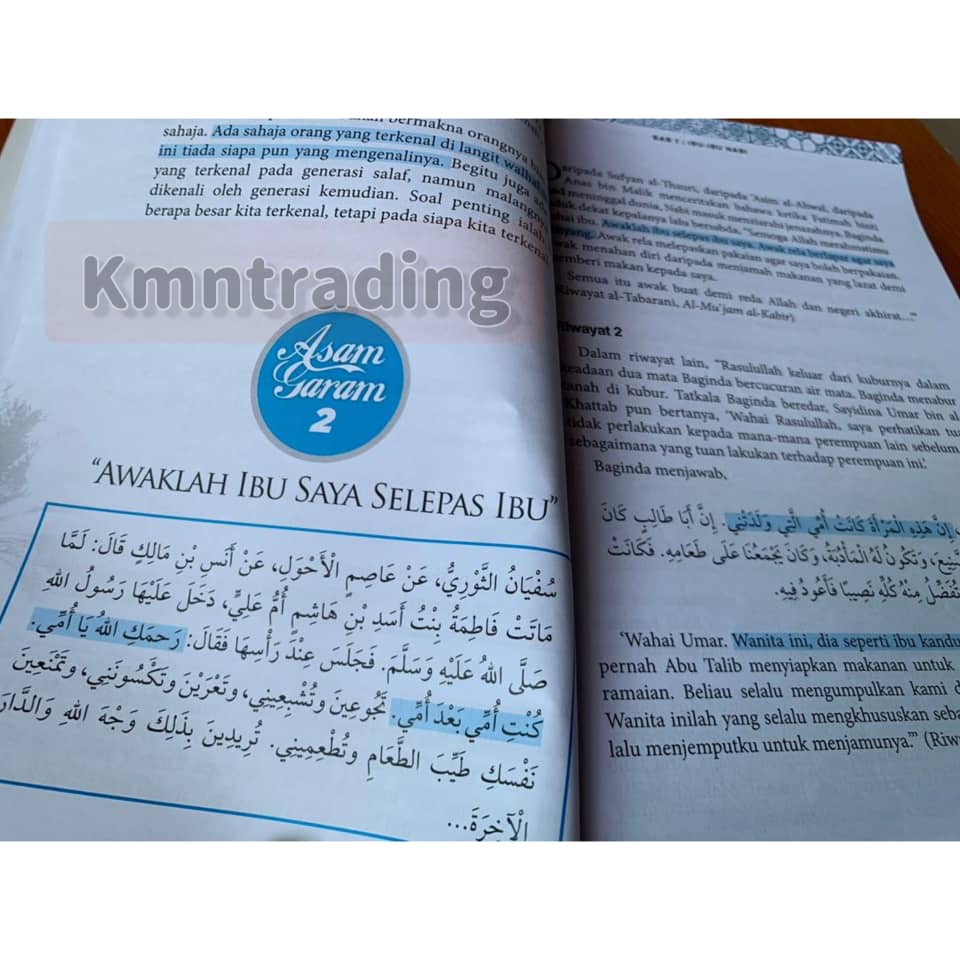 bermakna orangnya
sahaja. Ada sahaja orang yang terkenal di langit walhal
ini tiada siapa pun yang mengenalinya. Begitu juga
yang terkenal pada generasi salaf, namun malangnya
dikenali oleh generasi kemudian. Soal penting ialah
berapa besar kita terkenal, tetapi pada siapa kita terkenal
Kmntrading
Asam
Garam
2
“AWAKLAH IBU SAYA SELEPAS IBU”
سُفْيَانُ الثَّوْرِيُّ، عَنْ عَاصِمِ الْأَحْوَلِ، عَنْ أَنَسِ بْنِ مَالِكٍ قَالَ: لَمَّا
مَاتَتْ فَاطِمَةُ بِنْتُ أَسَدِ بْنِ هَاشِمٍ أُمُّ عَلِيٍّ، دَخَلَ عَلَيْهَا رَسُولُ اللهِ
صَلَّى اللهُ عَلَيْهِ وَسَلَّمَ. فَجَلَسَ عِنْدَ رَأْسِهَا فَقَالَ: رَحِمَكِ اللهُ يَا أُمِّي.
كُنْتِ أُمِّي بَعْدَ أُمِّي. تَجُوعِينَ وَتُشْبِعِينِي، وَتَعْرَيْنَ وَتَكْسُونَنِي، وَتَمْنَعِينَ
نَفْسَكِ طَيِّبَ الطَّعَامِ وَتُطْعِمِينِي. تُرِيدِينَ بِذَلِكَ وَجْهَ اللهِ وَالدَّارَ
الْآخِرَةَ...
BAB 1 | IBU-IBU NABI
Daripada Sufyan al-Thauri, daripada 'Asim al-Ahwal, daripada
Anas bin Malik menceritakan bahawa ketika Fatimah binti
meninggal dunia, Nabi masuk menziarahi jenazahnya. Baginda
duduk dekat kepalanya lalu bersabda, “Semoga Allah merahmatimu
wahai ibu. Awaklah ibu selepas ibu saya. Awak rela berlapar agar saya
kenyang. Awak rela melepaskan pakaian agar saya boleh berpakaian.
Awak menahan diri daripada menjamah makanan yang lazat demi
memberi makan kepada saya.
Semua itu awak buat demi reda Allah dan negeri akhirat...”
(Riwayat al-Tabarani, Al-Mu'jam al-Kabir)
Riwayat 2
Dalam riwayat lain, “Rasulullah keluar dari kuburnya dalam
keadaan dua mata Baginda bercucuran air mata. Baginda menabur
tanah di kubur. Tatkala Baginda beredar, Sayidina Umar bin al-
Khattab pun bertanya, ‘Wahai Rasulullah, saya perhatikan tuan
tidak perlakukan kepada mana-mana perempuan lain sebelum
sebagaimana yang tuan lakukan terhadap perempuan ini.’
Baginda menjawab,
إِنَّ هَذِهِ الْمَرْأَةَ كَانَتْ أُمِّي الَّتِي وَلَدَتْنِي. إِنَّ أَبَا طَالِبٍ كَانَ
يَصْنَعُ، وَتَكُونُ لَهُ الْمَأْدُبَةُ، وَكَانَ يَجْمَعُنَا عَلَى طَعَامِهِ. فَكَانَتْ
تُفَضِّلُ مِنْهُ كُلِّهِ نَصِيبًا فَأَعُودُ فِيهِ.
‘Wahai Umar. Wanita ini, dia seperti ibu kandung
pernah Abu Talib menyiapkan makanan untuk
ramaian. Beliau selalu mengumpulkan kami
Wanita inilah yang selalu mengkhususkan
lalu menjemputku untuk menjamunya.’”